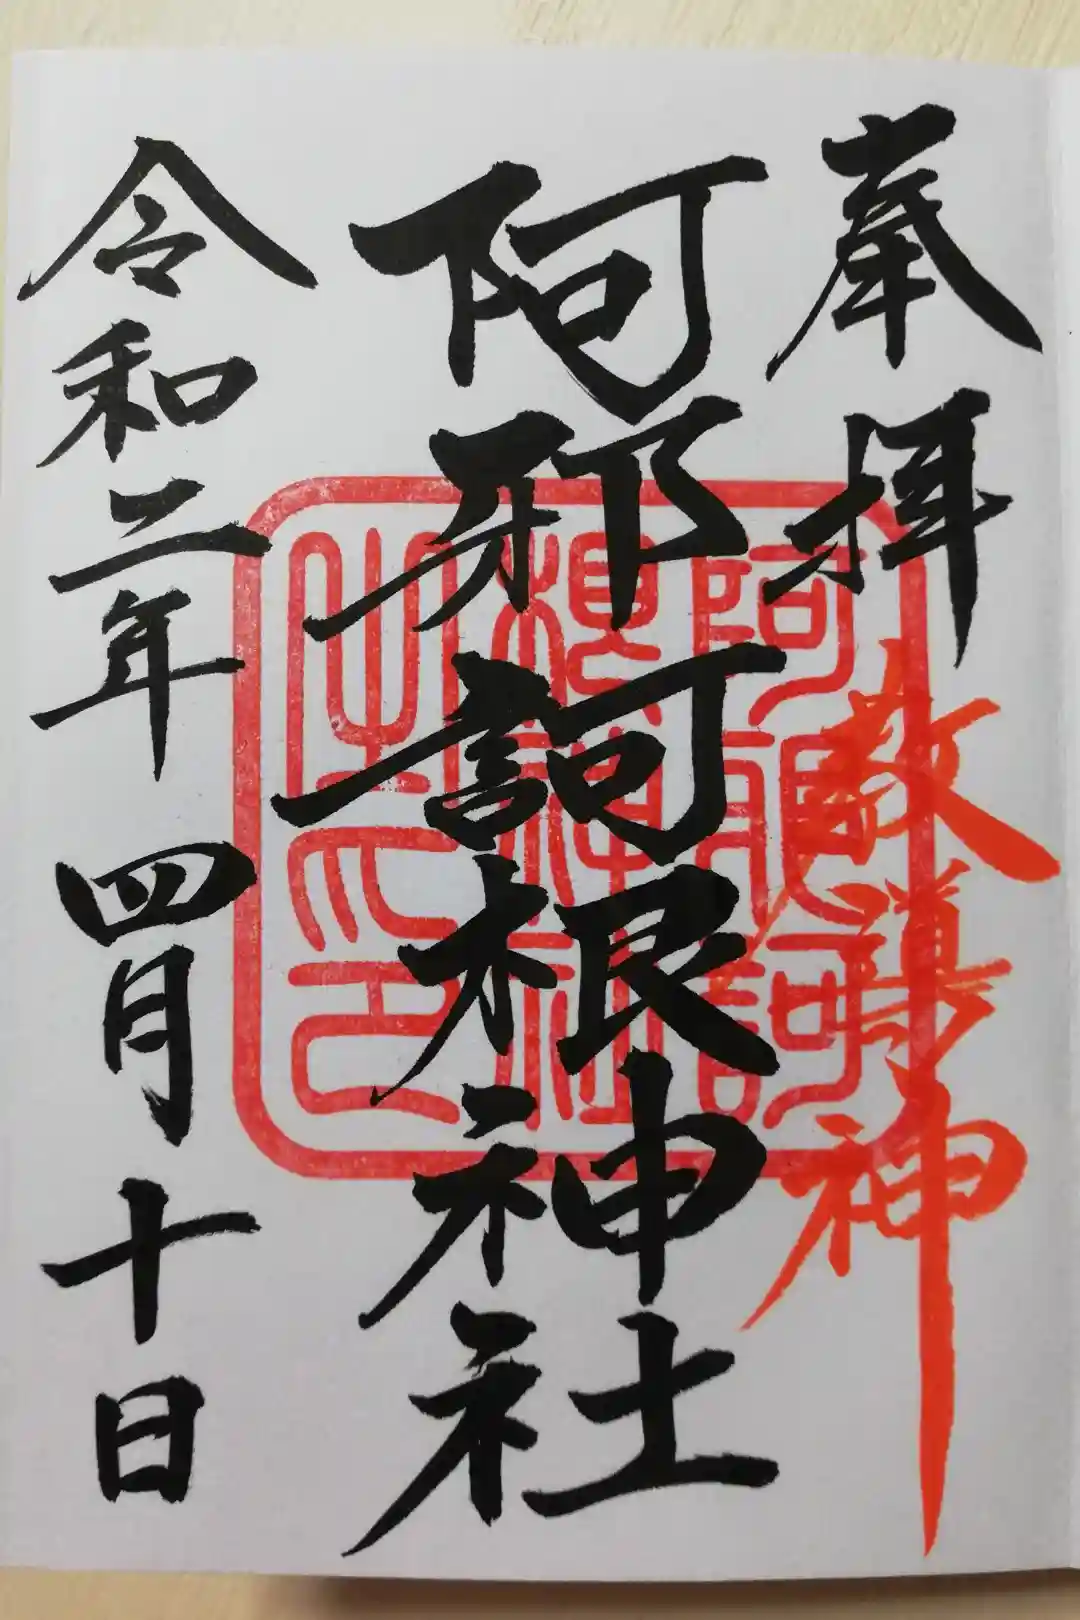 奉拝
教導神
阿邪訶根神社
令和二年四月十日
阿邪訶
根神社
之印